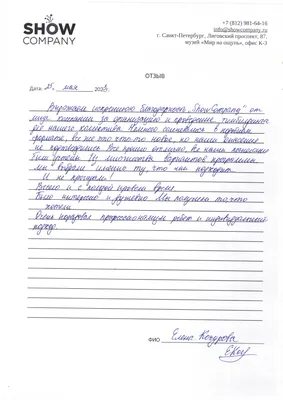 SHOW
COMPANY
+7 (812) 981-64-16
info@showcompany.ru
г. Санкт-Петербург, Лиговский проспект, 87,
музей «Мир на ощупь», офис К-3
ОТЗЫВ
Дата 25 мая
Выражаем искреннюю благодарность „Show-Company" от
лица компании за организацию и проведение тимбилдинга
для нашего коллектива. Немного сомневались в
формате, все же это что-то новое, но наши
не подтвердились. Все прошло отлично, все наши пожелания
были учтены. Из множества вариантов программы
мы выбрали именно ту, что нам подходит.
И не прогадали!
Весело и с пользой провели время
Было интересно и душевно. Мы получили то что
хотели
Очень порадовал профессионализм ребят и индивидуальный
подход.
ФИО Елена Кочурова